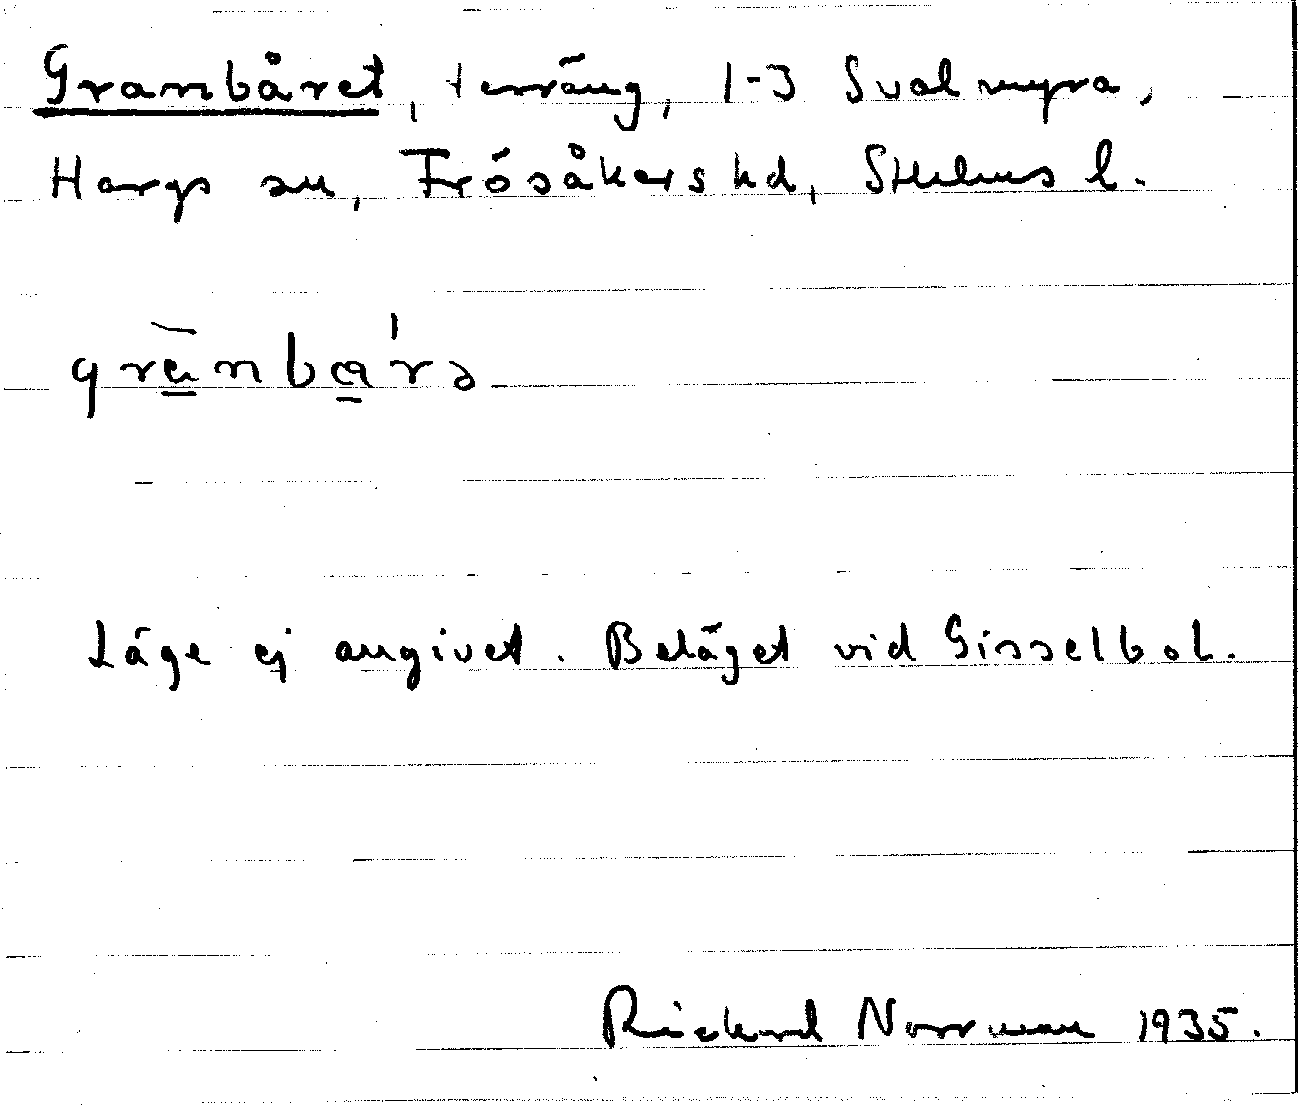 Granbåret, terräng, 1-3 Svalmyra,
Hargs sn, Frösåkers hd, Sthlms l.
grānba̱'rə
Läge ej angivet. Beläget vid Gisselbol.
Rickard Norrman 1935.